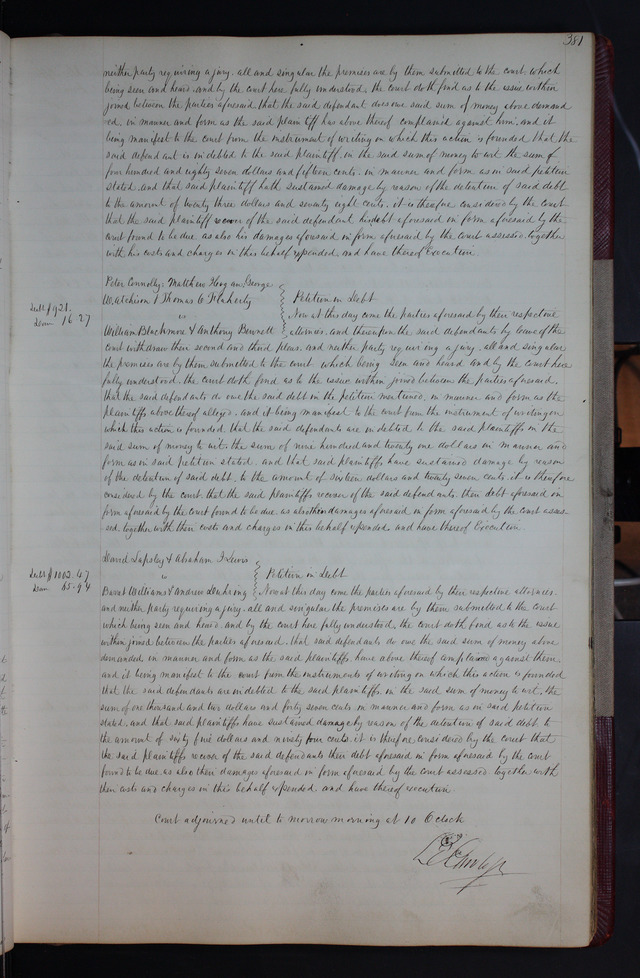 381
neither party requiring a jury. all and singular the premises are by them submitted to the court. which
being seen and heard. and by the court here fully understood. the court doth find as to the issue within
joined between the parties aforesaid. that the said defendant does owe said sum of money above demand
ed. in manner and form as the said plaintiff has above thereof complained against him. and it
being manifest to the court from the instrument of writing on which this action is founded that the
said defendant is indebted to the said plaintiff. in the said sum of money to wit the sum of
four hundred and eighty seven dollars and fifteen cents. in manner and form as in said petition
stated. and that said plaintiff hath sustained damage by reason of the detention of said debt
to the amount of twenty three dollars and seventy eight cents. it is therefore considered by the court
that the said plaintiff recover of the said defendant his debt aforesaid in form aforesaid by the
court found to be due as also his damages aforesaid in form aforesaid by the court assessed. together
with his costs and charges in this behalf expended. and have thereof Execution.
Peter Connolly. Matthew Hoog an George
Debt $921. W. Atchison & Thomas C Flaherty Petition in Debt
Dam 16 27 vs Now at this day come the parties aforesaid by their respective
William Blackmore & Anthony Bennett attornies. and thereupon the said defendants by leave of the
court withdraw their second and third pleas. and neither party requiring a jury. all and singular
the premises are by them submitted to the court. which being seen and heard and by the court here
fully understood. the court doth find as to the issue within joined between the parties aforesaid.
that the said defendants do owe the said debt in the petition mentioned. in manner and form as the
plaintiffs above thereof alleged. and it being manifest to the court from the instrument of writing on
which this action is founded. that the said defendants are indebted to the said plaintiffs in the
said sum of money to wit. the sum of nine hundred and twenty one dollars in manner and
form as in said petition stated. and that said plaintiffs have sustained damage by reason
of the detention of said debt. to the amount of sixteen dollars and twenty seven cents. it is therefore
considered by the court. that the said plaintiffs recover of the said defendants. their debt aforesaid in
form aforesaid by the court found to be due. as also their damages aforesaid in form aforesaid by the court asses-
sed. together with their costs and charges in this behalf expended and have thereof Execution.
David Lapsley & Abraham S Lewis
Debt $1002.47 vs Petition in Debt
Dam 65.94 Barat Williams & Andrew Now at this day come the parties aforesaid by their respective attornies.
and neither party requiring a jury. all and singular the premises are by them submitted to the court
which being seen and heard. and by the court here fully understood. the court doth find as to the issue
within joined between the parties aforesaid. that said defendants do owe the said sum of money above
demanded. in manner and form as the said plaintiffs. have above thereof complained against them.
and it being manifest to the court from the instruments of writing on which this action is founded
that the said defendants are indebted to the said plaintiffs. in the said sum of money to wit. the
sum of one thousand and two dollars and forty seven cents. in manner and form as in said petition
stated. and that said plaintiffs have sustained damage by reason of the detention of said debt to
the amount of sixty five dollars and ninety four cents. it is therefore considered by the court that
the said plaintiffs recover of the said defendants their debt aforesaid in form aforesaid by the court
found to be due. as also their damages aforesaid in form aforesaid by the court assessed together with
their costs and charges in this behalf expended. and have thereof execution.
Court adjourned until to morrow morning at 10 O clock